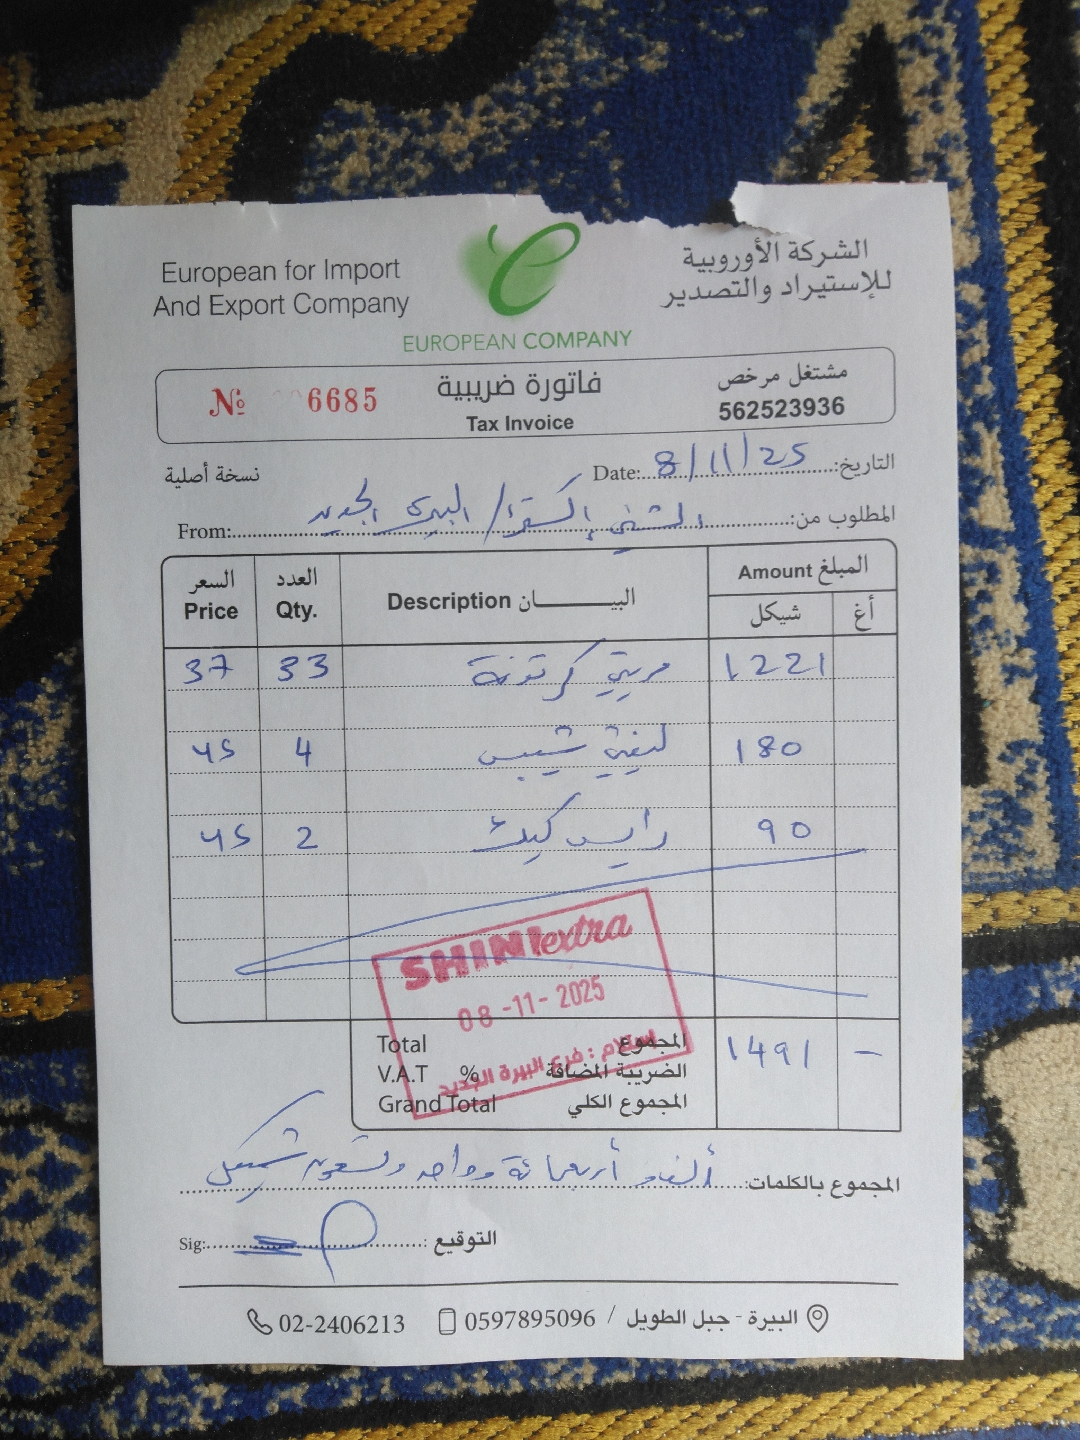 European for Import
And Export Company
الشركة الأوروبية
للإستيراد والتصدير
EUROPEAN COMPANY
№ 6685
فاتورة ضريبية
Tax Invoice
مشتغل مرخص
562523936
نسخة أصلية
Date: 8/11/25 التاريخ:
From: الشني إكسترا / البيرة الجديد المطلوب من:
السعر العدد البيـــــــان Description المبلغ Amount
Price Qty. شيكل أغ
37 33 كرتونة 1221
45 4 شيبس 180
45 2 رايس كيك 90
SHINI extra
08-11-2025
استلام : فرع البيرة الجديد
Total المجموع 1491 -
V.A.T % الضريبة المضافة
Grand Total المجموع الكلي
المجموع بالكلمات: أربعمائة وواحد وتسعون شيكل
Sig: التوقيع:
02-2406213 0597895096 / البيرة - جبل الطويل